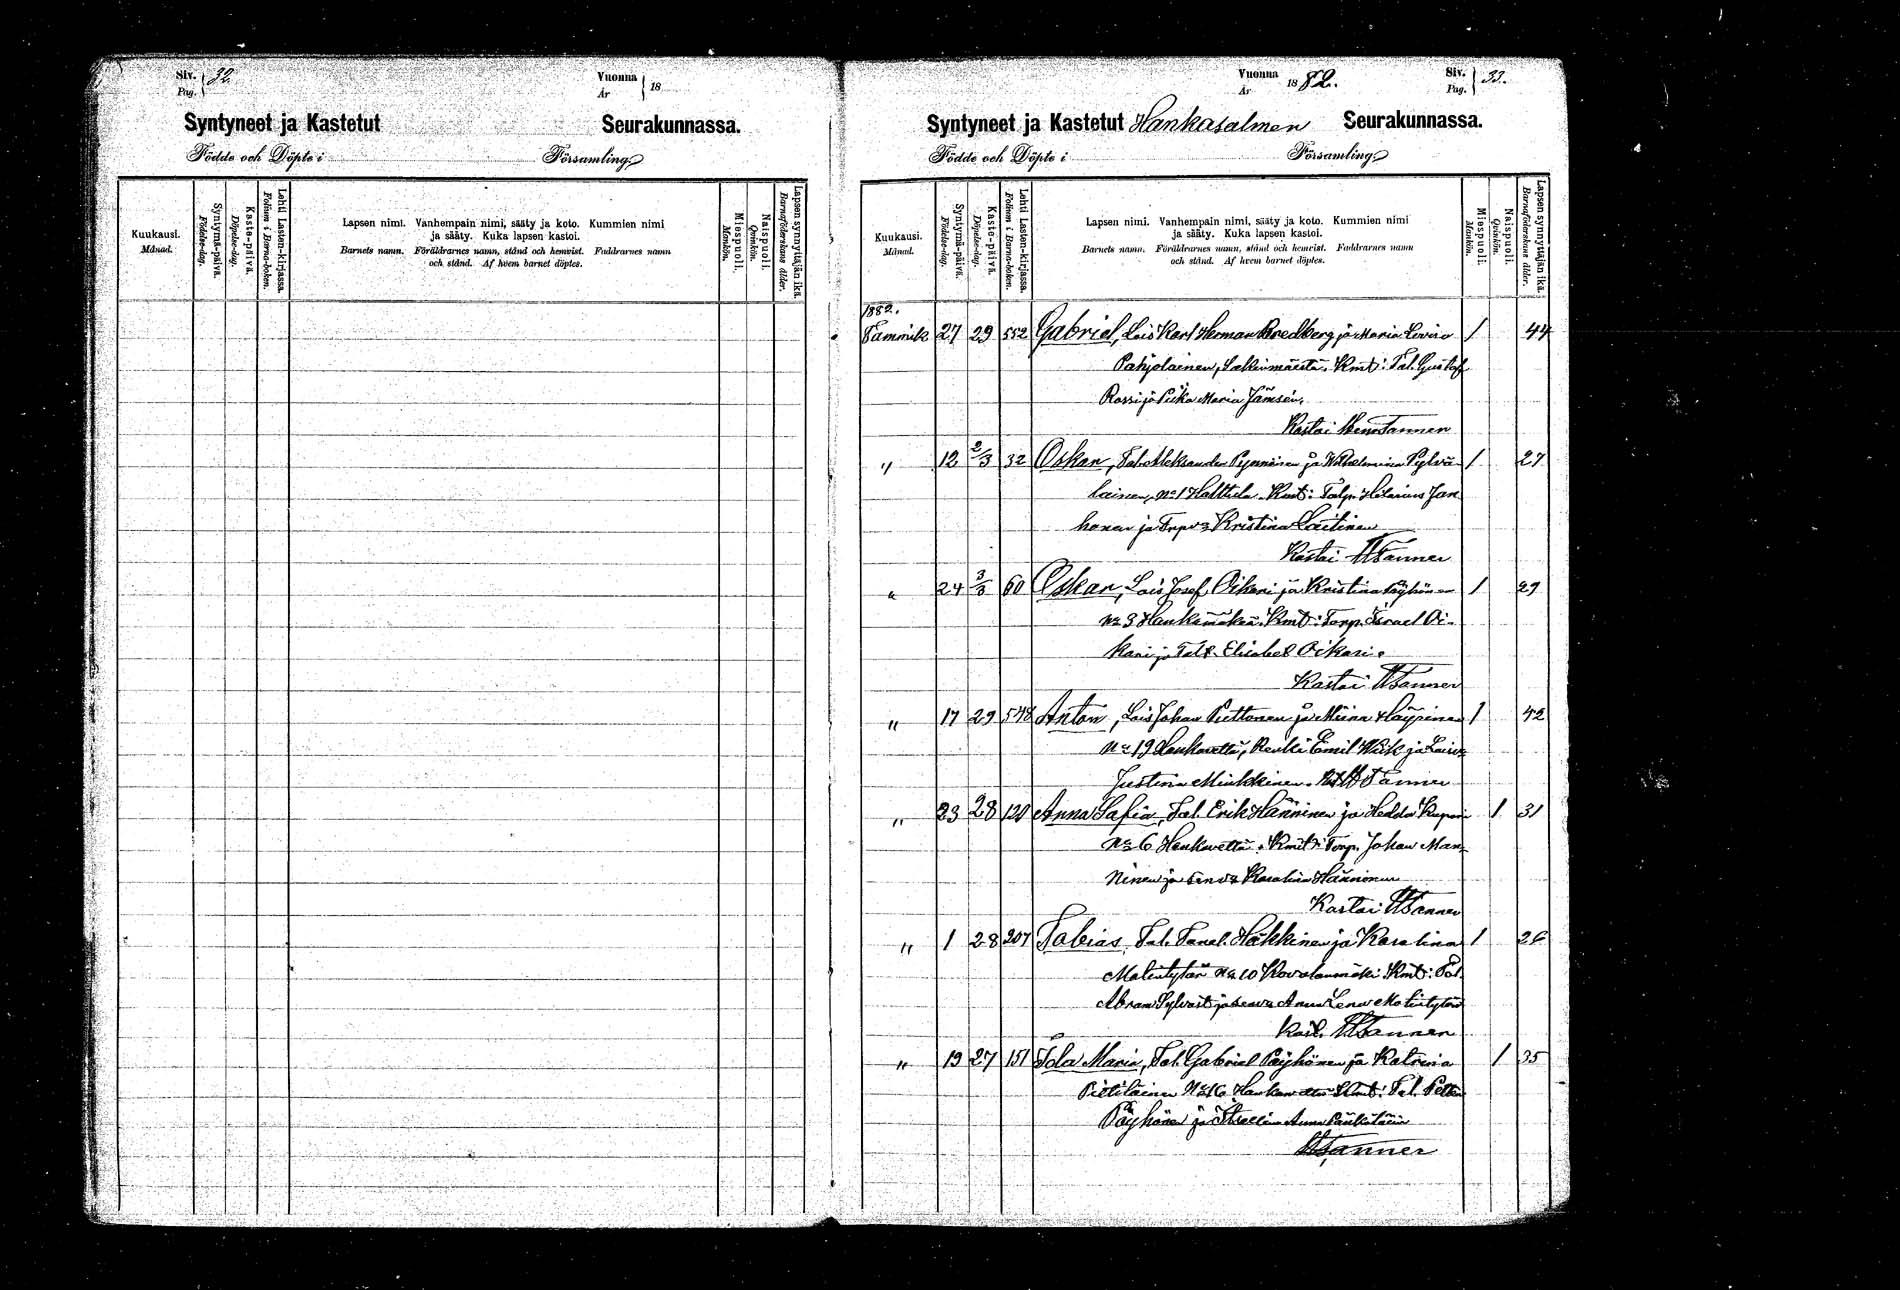 Siv. 32.
Pag.
Vuonna 18
År
Syntyneet ja Kastetut Seurakunnassa.
Födde och Döpte i Församling
Kuukausi.
Månad.
Syntymä-päivä.
Födelse-dag.
Kaste-päivä.
Döpelse-dag.
Lehti Lasten-kirjassa.
Folium i Barna-boken.
Lapsen nimi. Vanhempain nimi, sääty ja koto. Kummien nimi
ja sääty. Kuka lapsen kastoi.
Barnets namn. Föräldrarnes namn, stånd och hemvist. Faddrarnes namn
och stånd. Af hvem barnet döptes.
Miespuoli.
Mankön.
Naispuoli.
Qvinkön.
Lapsen synnyttäjän ikä.
Barnaföderskans ålder.
Vuonna 1882.
År
Siv. 33.
Pag.
Syntyneet ja Kastetut Hankasalmen Seurakunnassa.
Födde och Döpte i Församling
Kuukausi.
Månad.
Syntymä-päivä.
Födelse-dag.
Kaste-päivä.
Döpelse-dag.
Lehti Lasten-kirjassa.
Folium i Barna-boken.
Lapsen nimi. Vanhempain nimi, sääty ja koto. Kummien nimi
ja sääty. Kuka lapsen kastoi.
Barnets namn. Föräldrarnes namn, stånd och hemvist. Faddrarnes namn
och stånd. Af hvem barnet döptes.
Miespuoli.
Mankön.
Naispuoli.
Qvinkön.
Lapsen synnyttäjän ikä.
Barnaföderskans ålder.
1882.
Tammik 27 29 552 Gabriel, Lois Karl Herman Bredberg ja Maria Lovisa 1 44
Pohjolainen, Kmt: Tal. Gustaf
Rossi ja Piika Maria Jämsén.
Kastoi Tanner
" 12 2/3 32 Oskar, Tal. Aleksander Pynnönen ja Wilhelmina Pylvä- 1 27
läinen, No 1 Halttula. Kmt: Talp. Hilarius Jan
honen ja Kristina Laitinen
Kastoi Tanner
" 24 3/3 60 Oskar, Lois Josef Oikari ja Kristina Pöyhönen 1 29
No 3 Hankamäkiä. Kmt: Torp. Israel Oi-
kari ja Elisabet Oikari.
Kastoi Tanner
" 17 29 548 Anton, Lois Johan Puttonen ja Miina Häyrinen 1 42
No 19 Hankavettä, Renki Emil Wiik ja
Justina Minkkinen. Tanner
" 23 28 120 Anna Sofia, Tal. Erik Hänninen ja Hedda 1 31
No 6 Hankavettä. Kmt: Torp. Johan Man-
ninen ja Karolina Hänninen
Kastoi Tanner
" 1 28 207 Tobias, Tal. Hakkinen ja Karolina 1 26
Matintytär No 10 Kovalanmäki Kmt: Tal.
Abram ja Anna Lena Matintytär
Kast. Tanner
" 19 27 151 Ida Maria, Tal. Gabriel Pöyhönen ja Katrina 1 35
Pietiläinen No 16 Hankavettä Kmt: Tal. Petter
Pöyhönen ja Anna
Tanner